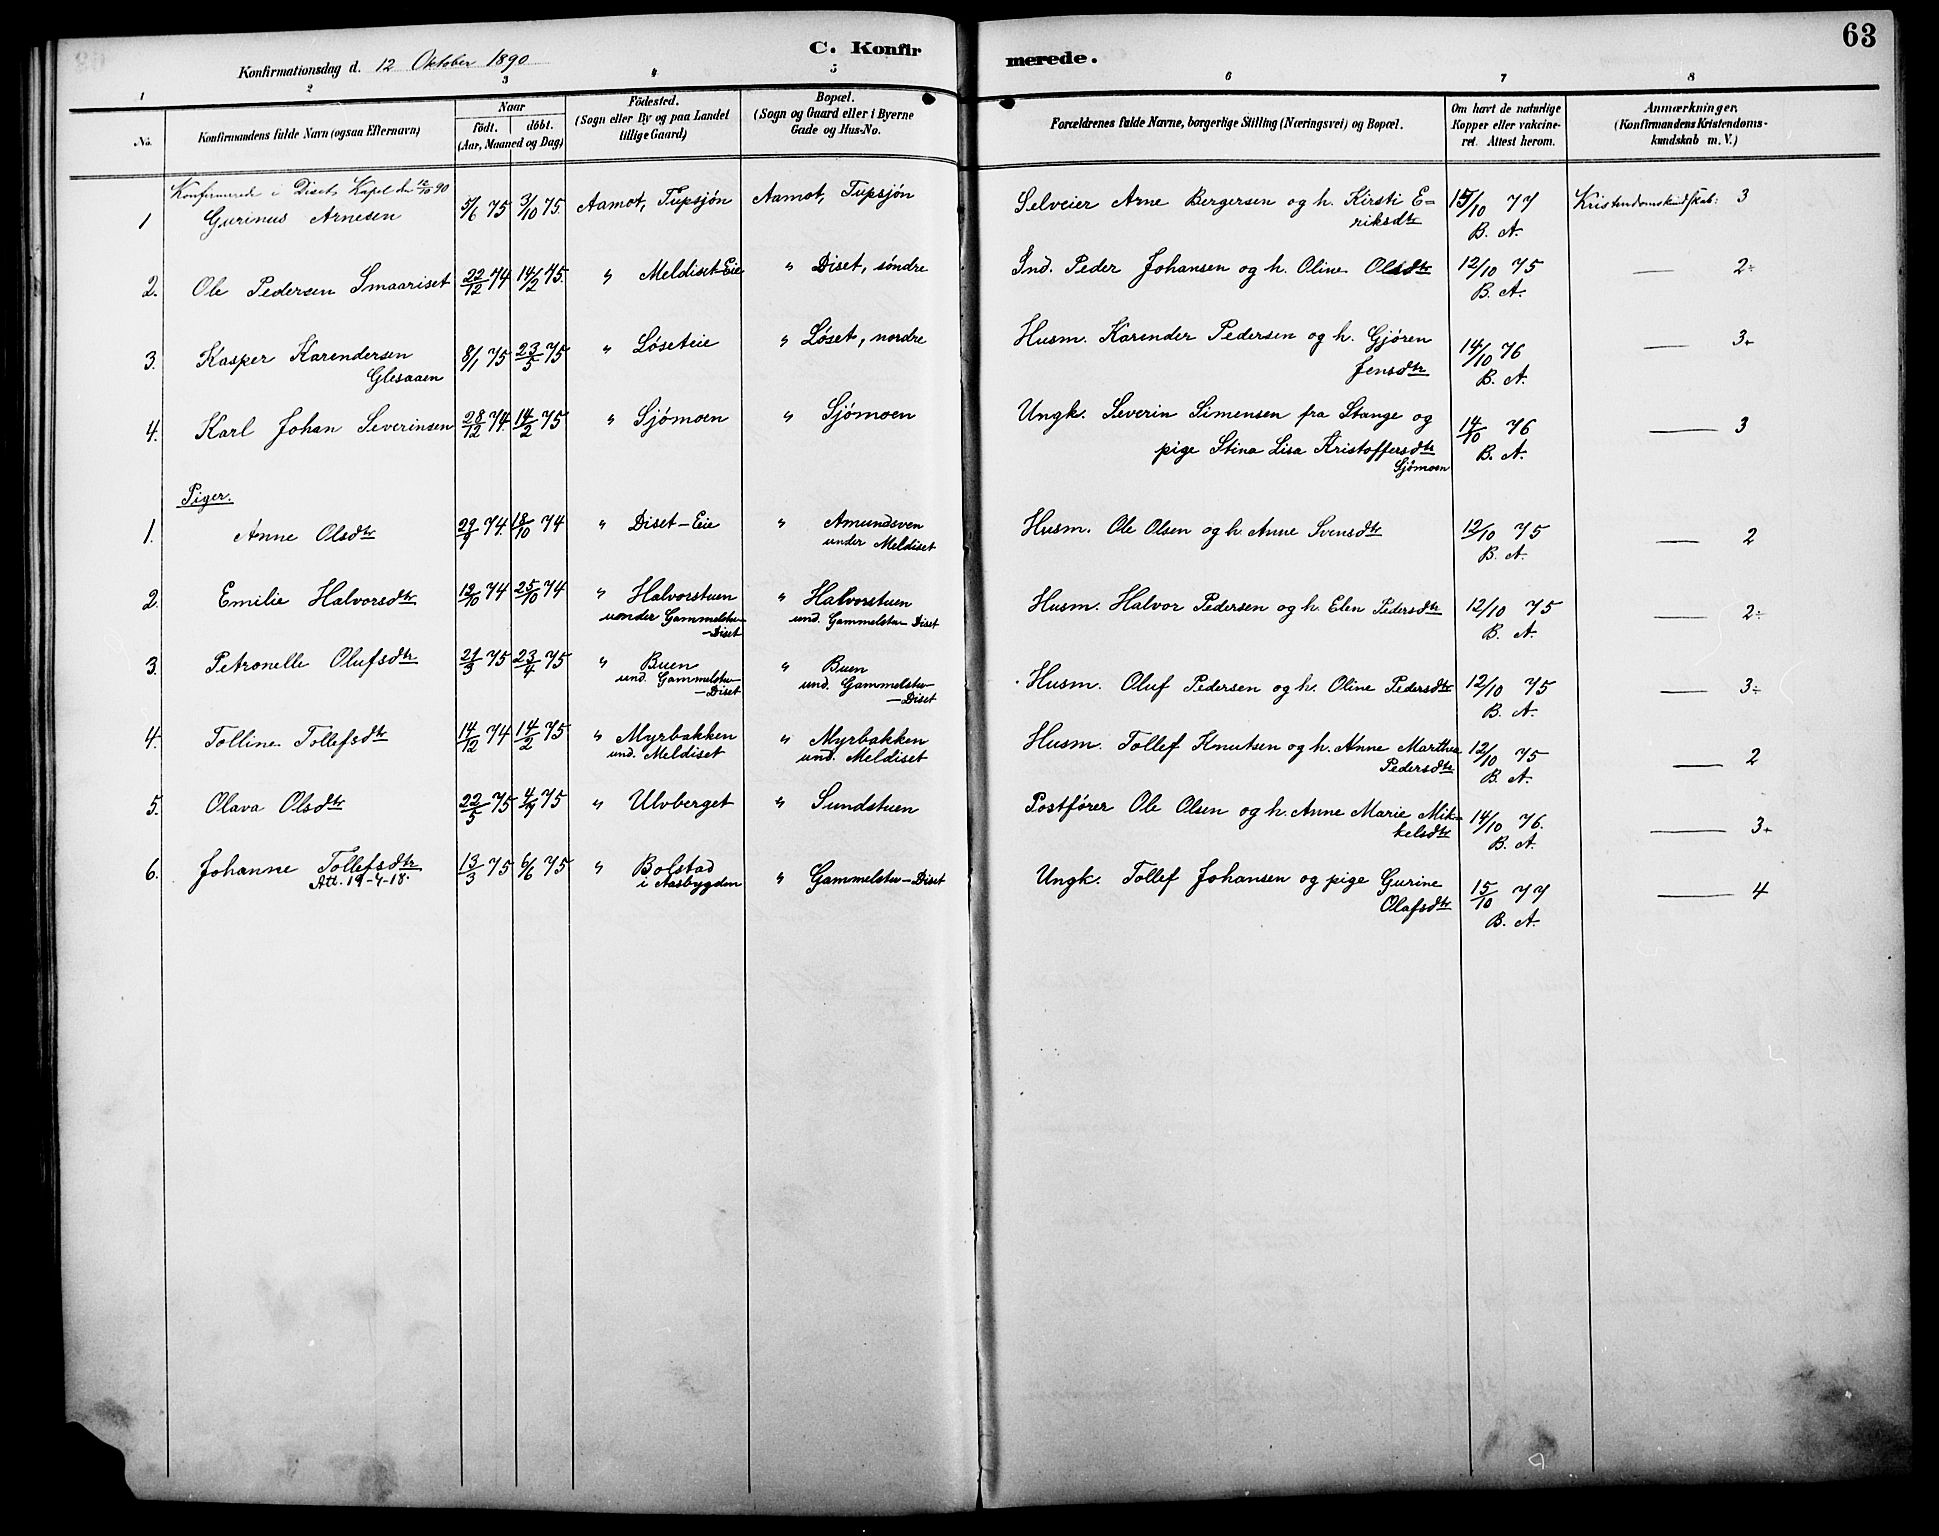 63
C. Konfirmerede.
Konfirmationsdag d. 12 Oktober 1890
1 2 3 4 5 6 7 8
No.
Konfirmandens fulde Navn (ogsaa Efternavn)
Naar
födt. döbt.
(Aar, Maaned og Dag)
Födested.
(Sogn eller By og paa Landet
tillige Gaard)
Bopæl.
(Sogn og Gaard eller i Byerne
Gade og Hus-No.
Forældrenes fulde Navne, borgerlige Stilling (Næringsvei) og Bopæl.
Om havt de naturlige
Kopper eller vakcine-
ret. Attest herom.
Anmærkninger.
(Konfirmandens Kristendoms-
kundskab m. V.)
Konfirmerede i Diset Kapel den 12/10 90
1 Gurinus Arnesen 5/6 75 3/10 75. Aamot, Tupsjön Aamot, Tupsjön Selveier Arne Bergersen og h. Kirsti E-
riksdtr 15/10 77 B. A. Kristendomskundskab: 3
2. Ole Pedersen Smaariset 22/12 74 14/2 75. " Meldiset-Eie " Diset, söndre Ind. Peder Johansen og h. Oline Olsdtr 12/10 75 B. A. — 2÷
3. Kasper Karendersen
Glesaaen 8/1 75 23/5 75 " Löseteie " Löset, nordre Husm. Karender Pedersen og h. Gjören
Jensdtr 14/10 76 B. A. — 3+
4. Karl Johan Severinsen 28/12 74. 14/2 75 " Sjömoen " Sjömoen Ungk. Severin Simensen fra Stange og
pige Stina Lisa Kristoffersdtr
Sjömoen 14/10 76 B. A. — 3
Piger.
1. Anne Olsdtr 29/9 74. 18/10 74 " Diset-Eie " Amundsven
under Meldiset Husm. Ole Olsen og h. Anne Svensdtr 12/10 75 B. A. — 2
2. Emilie Halvorsdtr 12/10 74 25/10 74 " Halvorstuen
under Gammelstu-
-Diset " Halvorstuen
und. Gammelstu-Diset Husm. Halvor Pedersen og h. Elen Pedersdtr 12/10 75 B. A. — 2÷
3. Petronelle Olufsdtr 21/3 75 23/4 75 " Buen
und. Gammelstu-
-Diset " Buen
und. Gammelstu-
-Diset Husm. Oluf Pedersen og h. Oline Pedersdtr 12/10 75 B. A. — 3÷
4. Tolline Tollefsdtr 14/12 74 14/2 75 " Myrbakken
und. Meldiset " Myrbakken
und. Meldiset Husm. Tollef Knutsen og h. Anne Marthea
Pedersdtr 12/10 75 B. A. — 2
5. Olava Olsdtr 22/5 75 4/7 75 " Ulvberget " Sundstuen Postförer Ole Olsen og h. Anne Marie Mik-
kelsdtr 14/10 76. B. A. — 3+
6. Johanne Tollefsdtr
Att. 19-4-18. 13/3 75 6/6 75 " Bolstad
i Aasbygden " Gammelstu-Diset Ungk. Tollef Johansen og pige Gurine
Olafsdtr 15/10 77 B. A. — 4